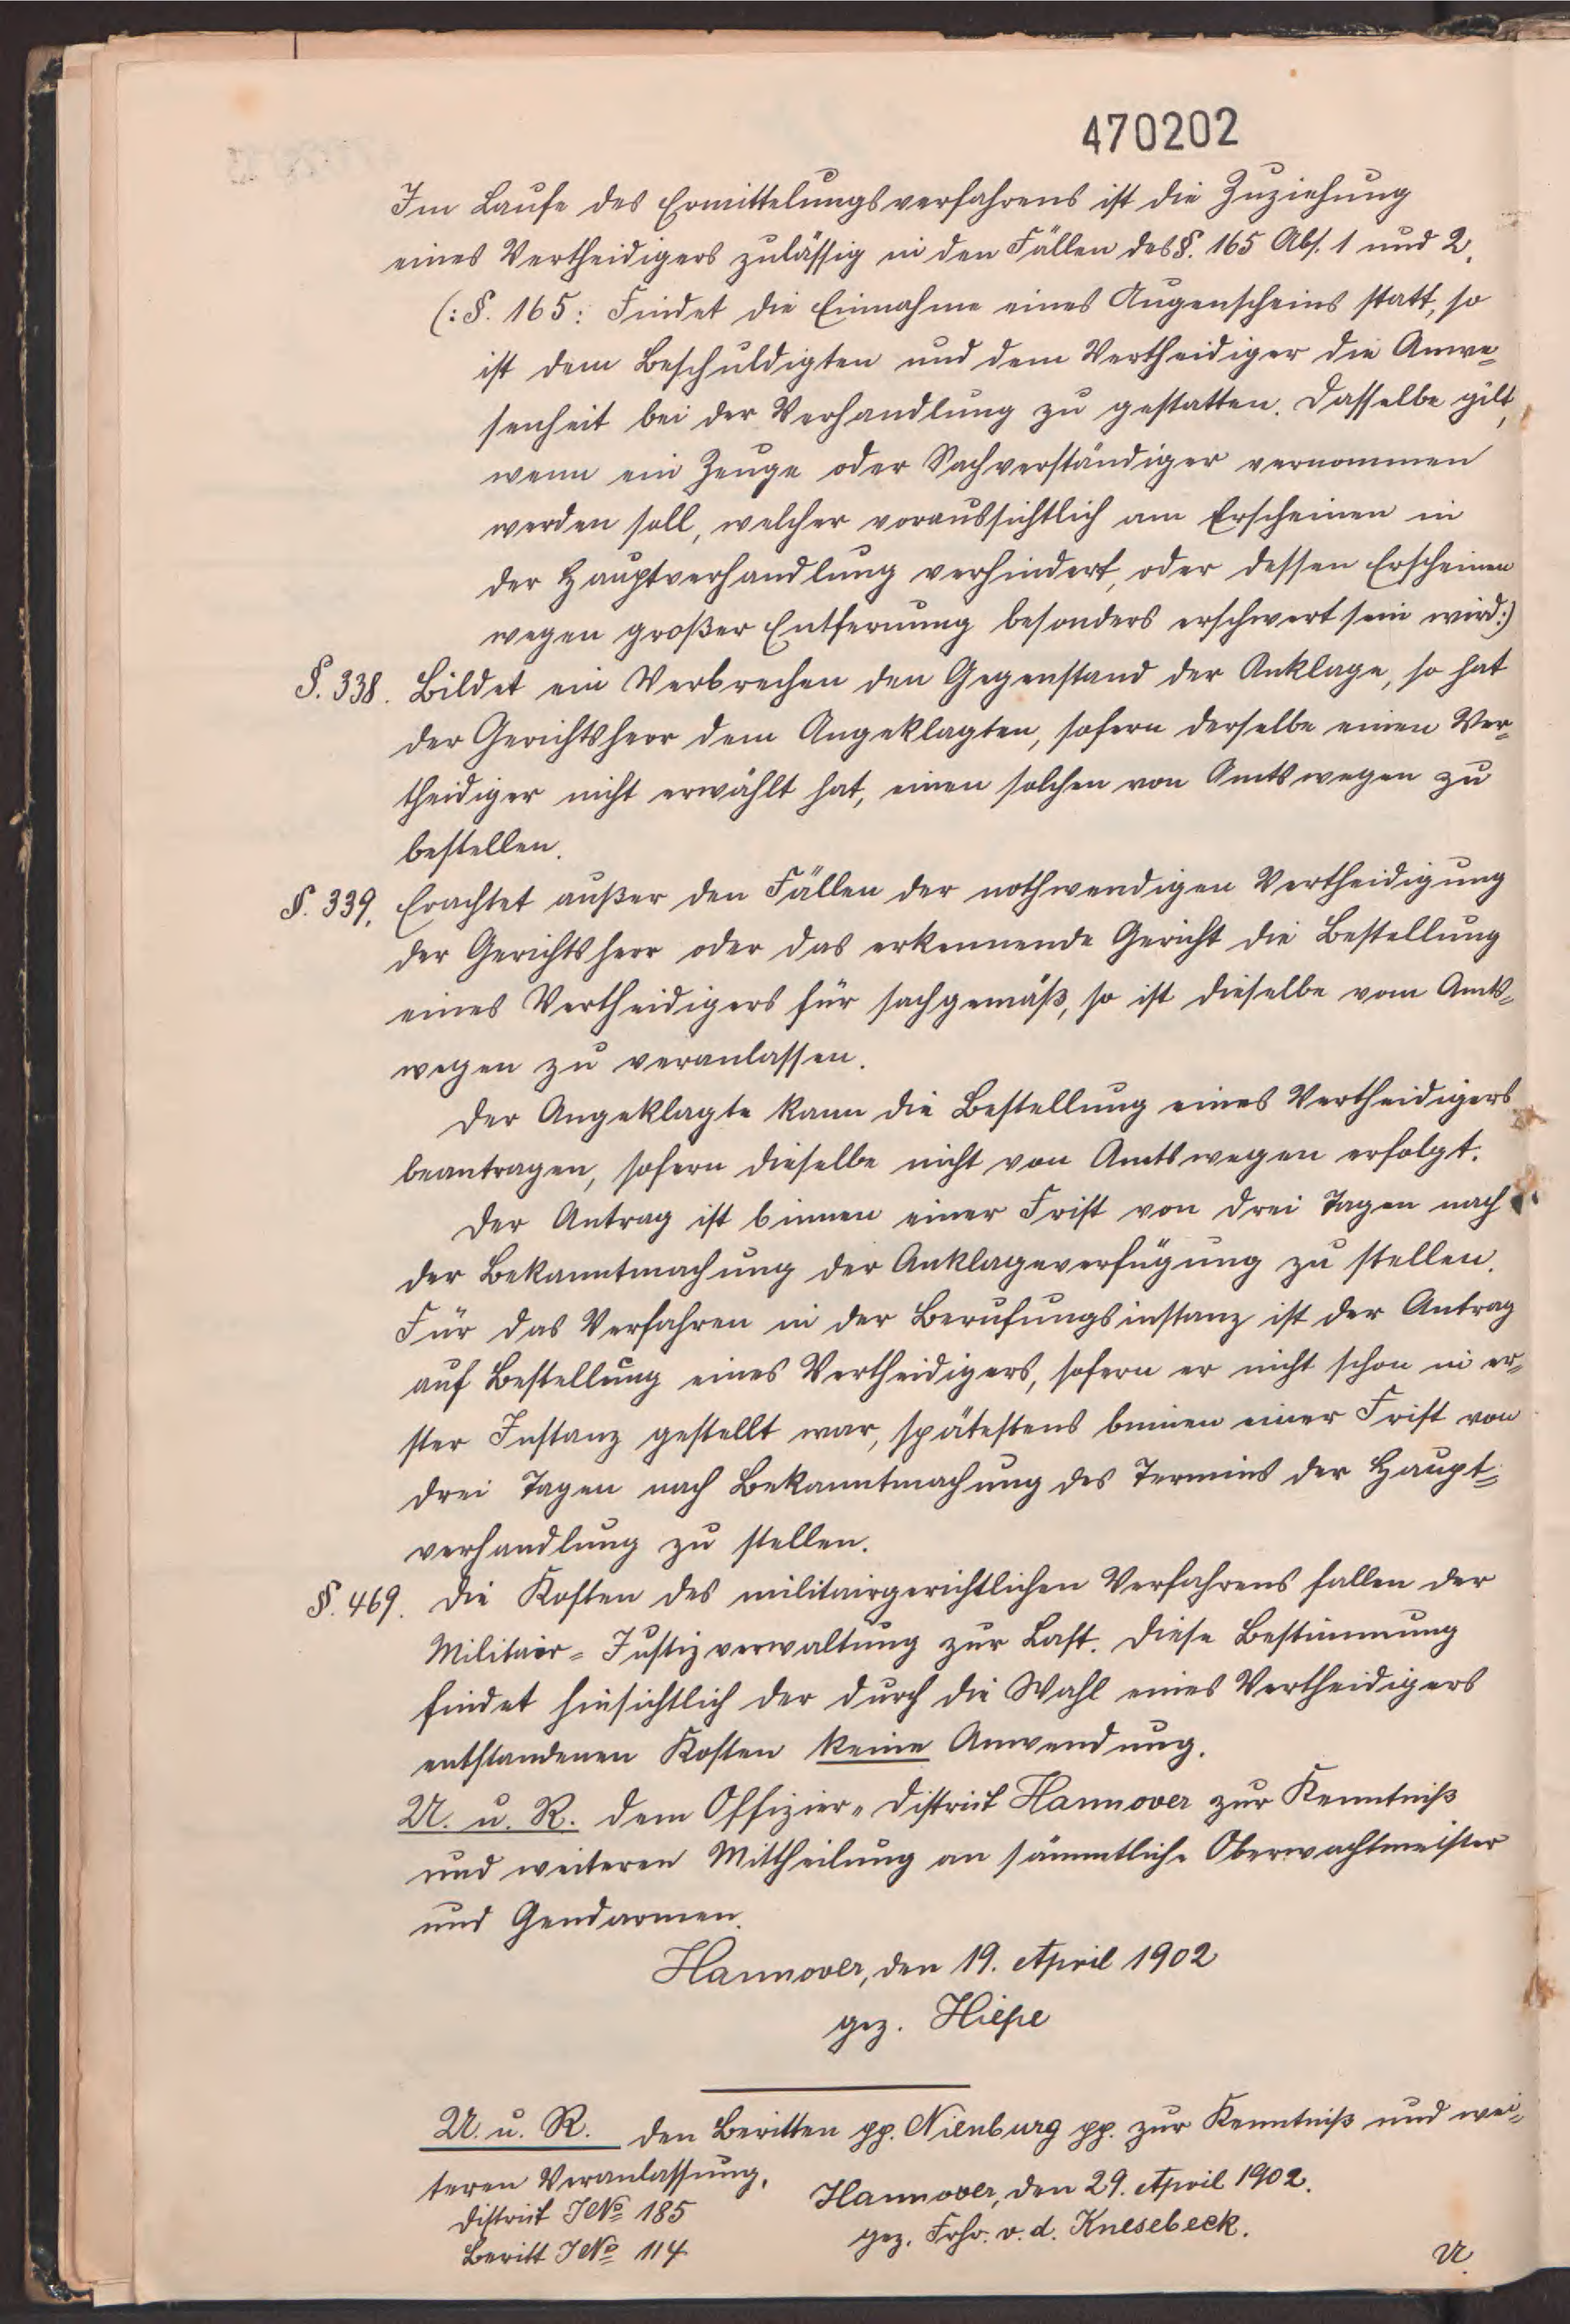 470202
Im Laufe des Ermittelungsverfahrens ist die Zuziehung
eines Vertheidigers zulässig in den Fällen des §. 165 Abs. 1 und 2.
(: §. 165: Findet die Einnahme eines Augenscheins statt, so
ist dem Beschuldigten und dem Vertheidiger die Anwe=
senheit bei der Verhandlung zu gestatten. Dasselbe gilt,
wenn ein Zeuge oder Sachverständiger vernommen
werden soll, welcher voraussichtlich am Erscheinen in
der Hauptverhandlung verhindert, oder dessen Erscheinen
wegen großer Entfernung besonders erschwert sein wird:)
§. 338. Bildet ein Verbrechen den Gegenstand der Anklage, so hat
der Gerichtsherr dem Angeklagten, sofern derselbe einen Ver=
theidiger nicht erwählt hat, einen solchen von Amtswegen zu
bestellen.
§. 339. Erachtet außer den Fällen der nothwendigen Vertheidigung
der Gerichtsherr oder das erkennende Gericht die Bestellung
eines Vertheidigers für sachgemäß, so ist dieselbe vom Amts=
wegen zu veranlassen.
Der Angeklagte kann die Bestellung eines Vertheidigers
beantragen, sofern dieselbe nicht von Amtswegen erfolgt.
Der Antrag ist binnen einer Frist von drei Tagen nach
der Bekanntmachung der Anklageverfügung zu stellen.
Für das Verfahren in der Berufungsinstanz ist der Antrag
auf Bestellung eines Vertheidigers, sofern er nicht schon in er=
ster Instanz gestellt war, spätestens binnen einer Frist von
drei Tagen nach Bekanntmachung des Termins der Haupt=
verhandlung zu stellen.
§. 469. Die Kosten des militairgerichtlichen Verfahrens fallen der
Militair=Justizverwaltung zur Last. Diese Bestimmung
findet hinsichtlich der durch die Wahl eines Vertheidigers
entstandenen Kosten keine Anwendung.
U. u. R. dem Offizier=District Hannover zur Kenntniß
und weiteren Mittheilung an sämmtliche Oberwachtmeister
und Gendarmen.
Hannover, den 19. April 1902
gez. Hiepe
U. u. R. den Beritten pp. Nienburg pp. zur Kenntniß und wei=
teren Veranlassung.
Hannover, den 29. April 1902.
District J № 185
gez. Frhr. v. d. Knesebeck.
Beritt J № 114
U.